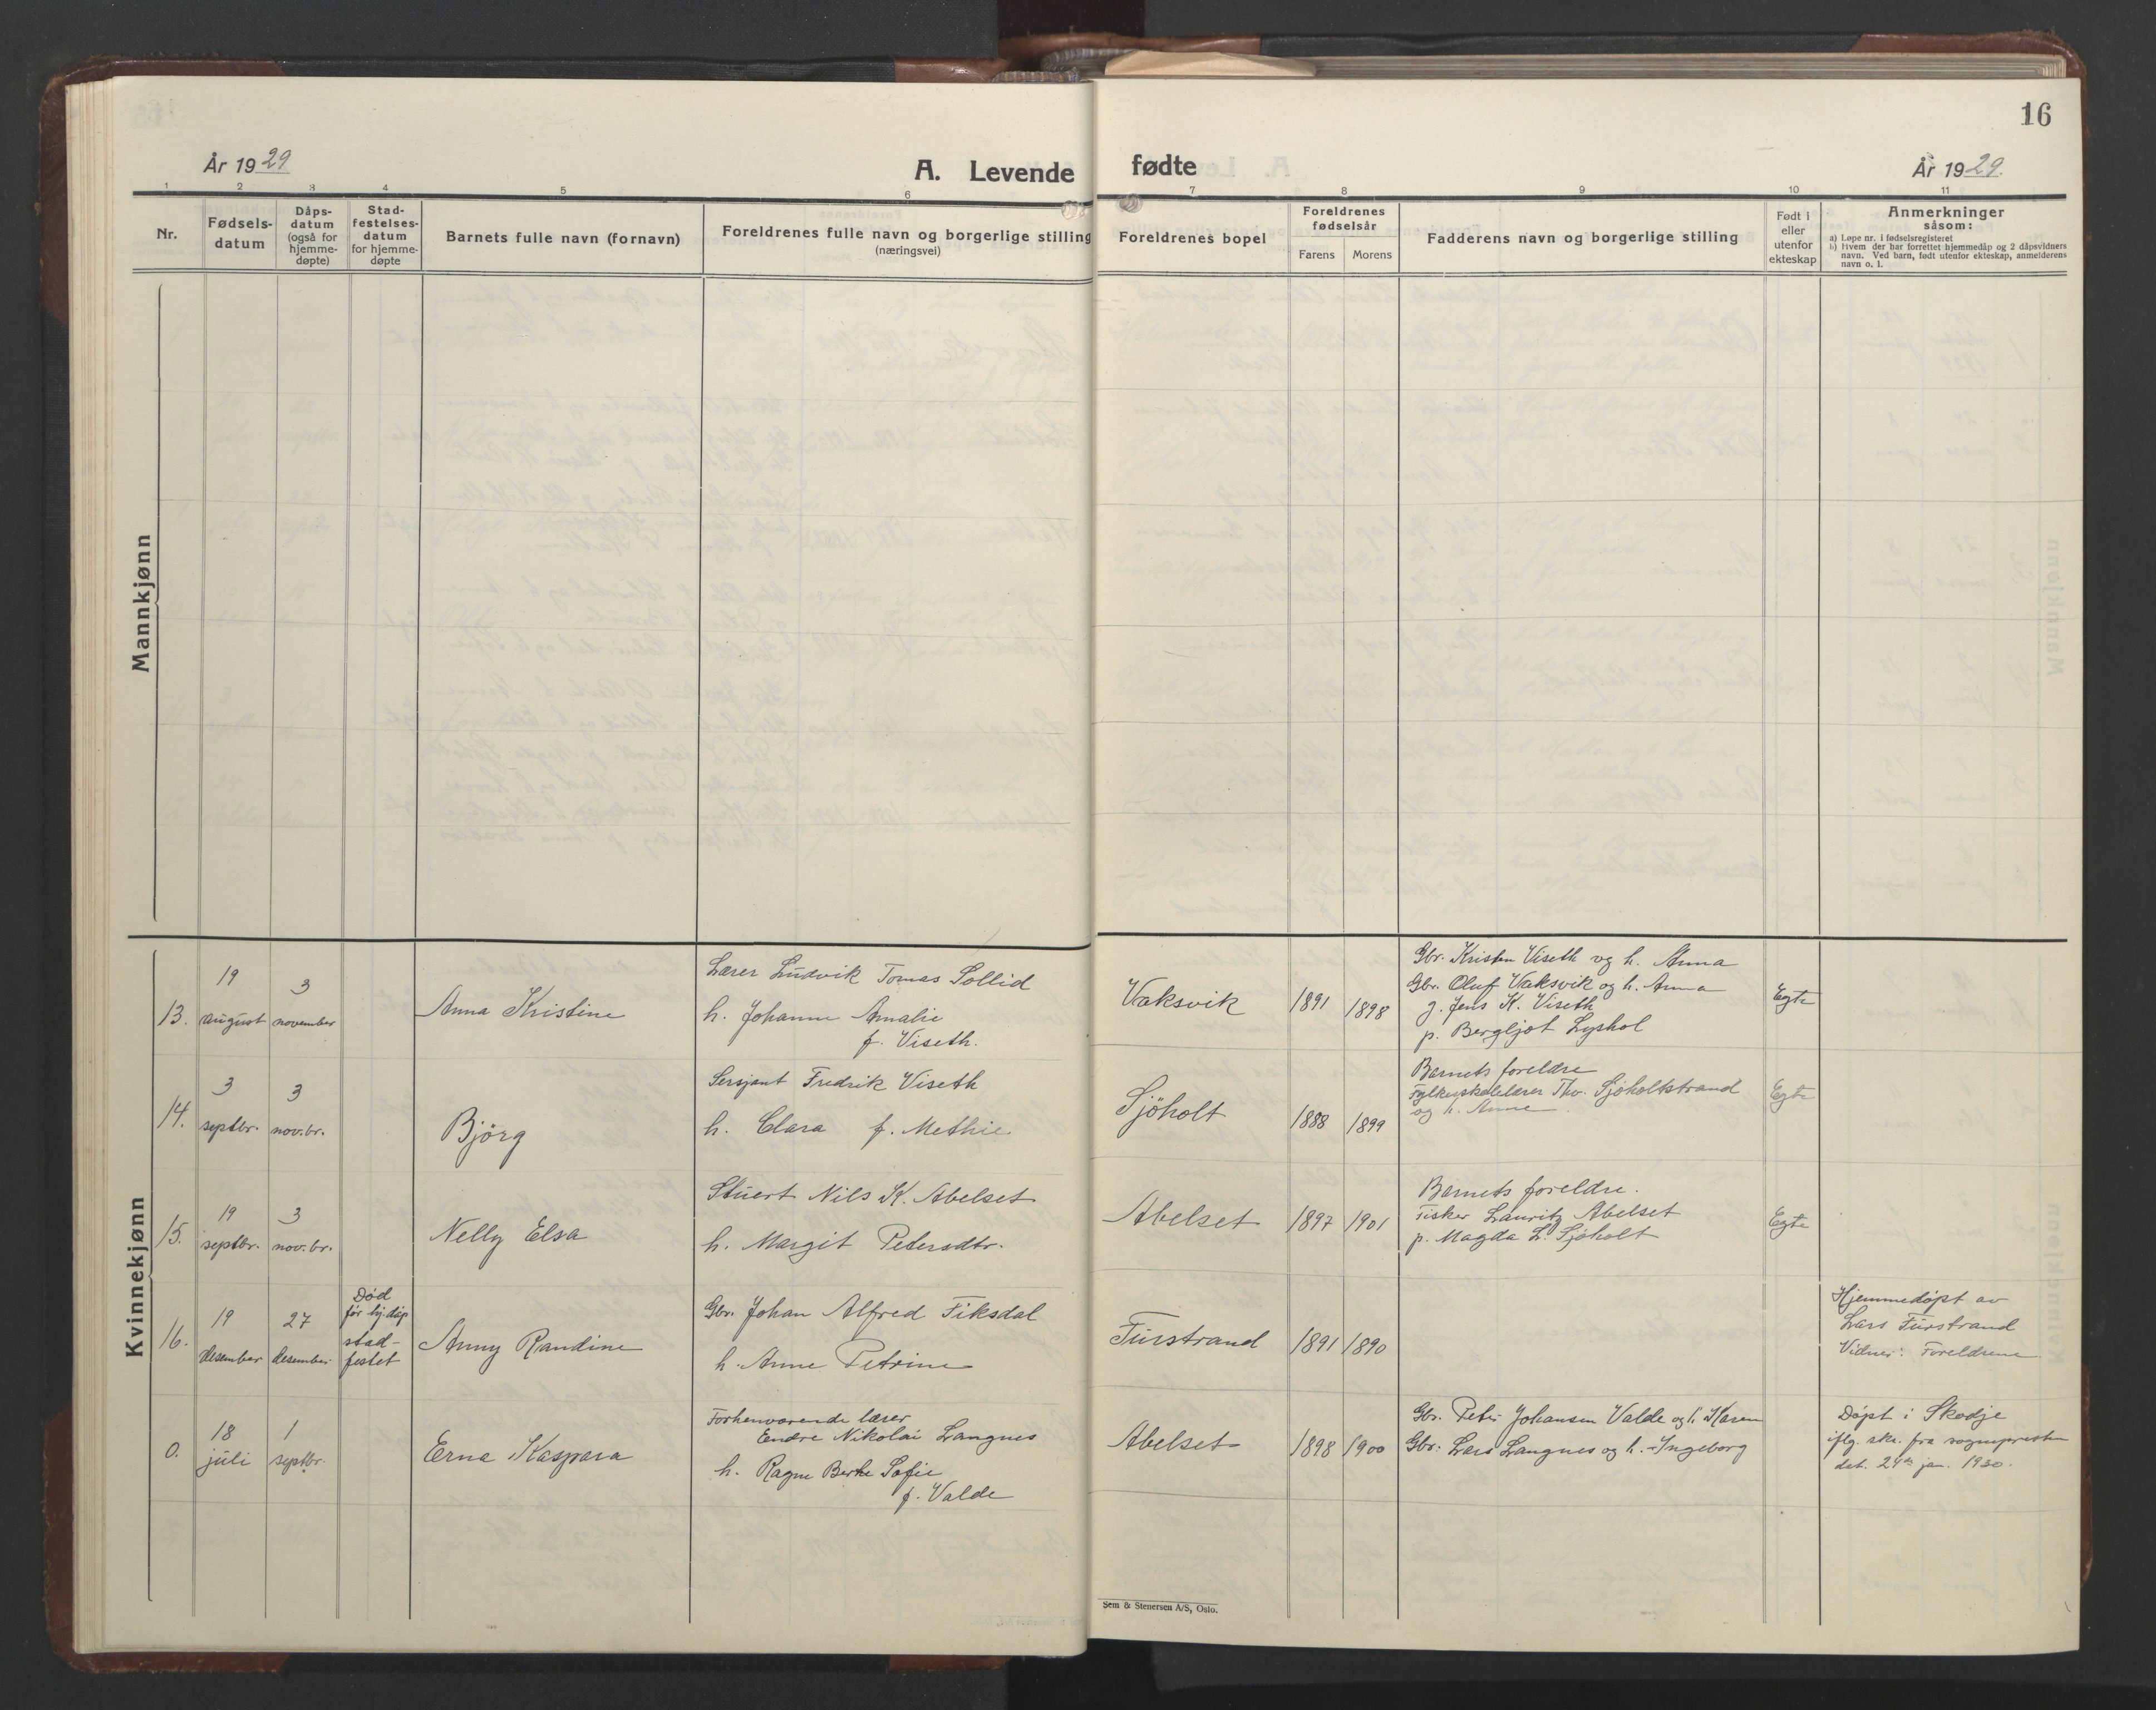 16
År 1929
A. Levende fødte
År 1929.
1 2 3 4 5 6 7 8 9 10 11
Nr.
Fødsels-
datum
Dåps-
datum
(også for
hjemme-
døpte)
Stad-
festelses-
datum
for hjemme-
døpte
Barnets fulle navn (fornavn)
Foreldrenes fulle navn og borgerlige stilling
(næringsvei)
Foreldrenes bopel
Foreldrenes
fødselsår
Farens Morens
Fadderens navn og borgerlige stilling
Født i
eller
utenfor
ekteskap
Anmerkninger
såsom:
a) Løpe nr. i fødselsregisteret
b) Hvem der har forrettet hjemmedåp og 2 dåpsvidners
navn. Ved barn, født utenfor ekteskap, anmelderens
navn o. l.
Mannkjønn
Kvinnekjønn
13.
19
august
3
november
Anna Kristine
Lærer Ludvik Tomas Sollid
h. Johanne Amalie
f. Viseth.
Vaksvik
1891
1898
Gbr. Kristen Viseth og h. Anna
Gbr. Oluf Vaksvik og h. Anna
g. Jens K. Viseth
p. Bergljot Lyshol
Egte
14.
3
septbr.
3
nov.br.
Bjørg
Sersjant Fredrik Viseth
h. Clara f. Methie
Sjöholt
1888
1899
Barnets foreldre
Fylkesskolelærer Thv. Sjøholtstrand
og h. Anne
Egte
15.
19
septbr.
3
nov.br.
Nelly Elsa
Stuert Nils K. Abelset
h. Margit Petersdtr.
Abelset
1897
1901
Barnets foreldre.
Fisker Lauritz Abelset
p. Magda L. Sjøholt
Egte
16.
19
desember
27
desember
Død
før hj.dåp
stad-
festet
Anny Randine
Gbr. Johan Alfred Fiksdal
h. Anne Petrine
Furstrand
1891
1890
Hjemmedøpt av
Lars Furstrand
Vidner: Foreldrene
0.
18
juli
1
septbr.
Erna Kaspara
Forhenværende lærer
Endre Nikolai Langnes
h. Ragne Berthe Sofie
f. Valde
Abelset
1898
1900
Gbr. Peter Johansen Valde og h. Karen
Gbr. Lars Langnes og h. Ingeborg
Døpt i Skodje
iflg. skr. fra sogнepresten
dat. 24de jan. 1930.
Sem & Stenersen A/S, Oslo.